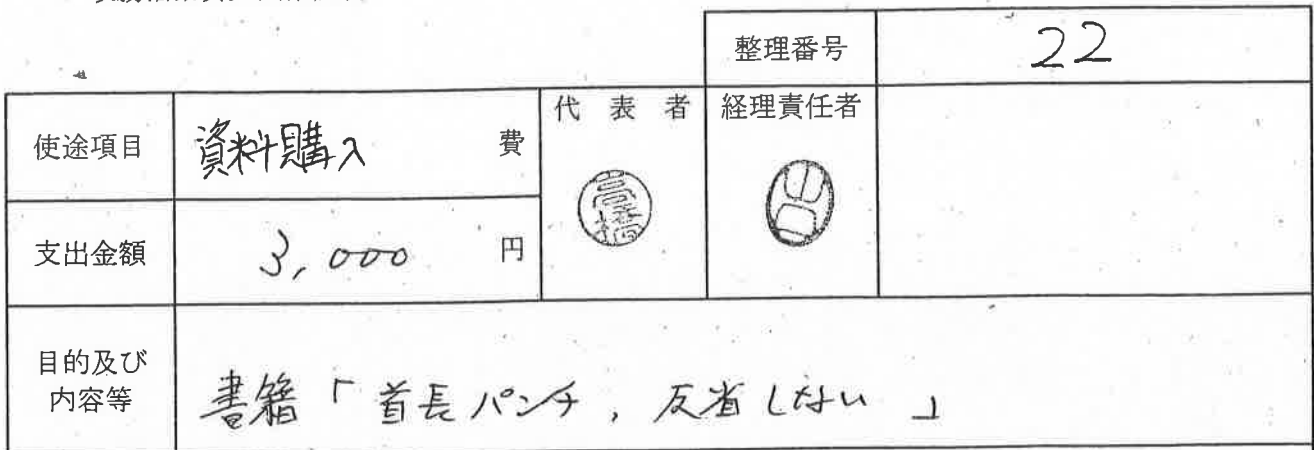 整理番号 22
使途項目 資料購入 費
代表者 経理責任者
高橋
支出金額 3,000 円
目的及び
内容等
書籍「首長パンチ, 反省しない」